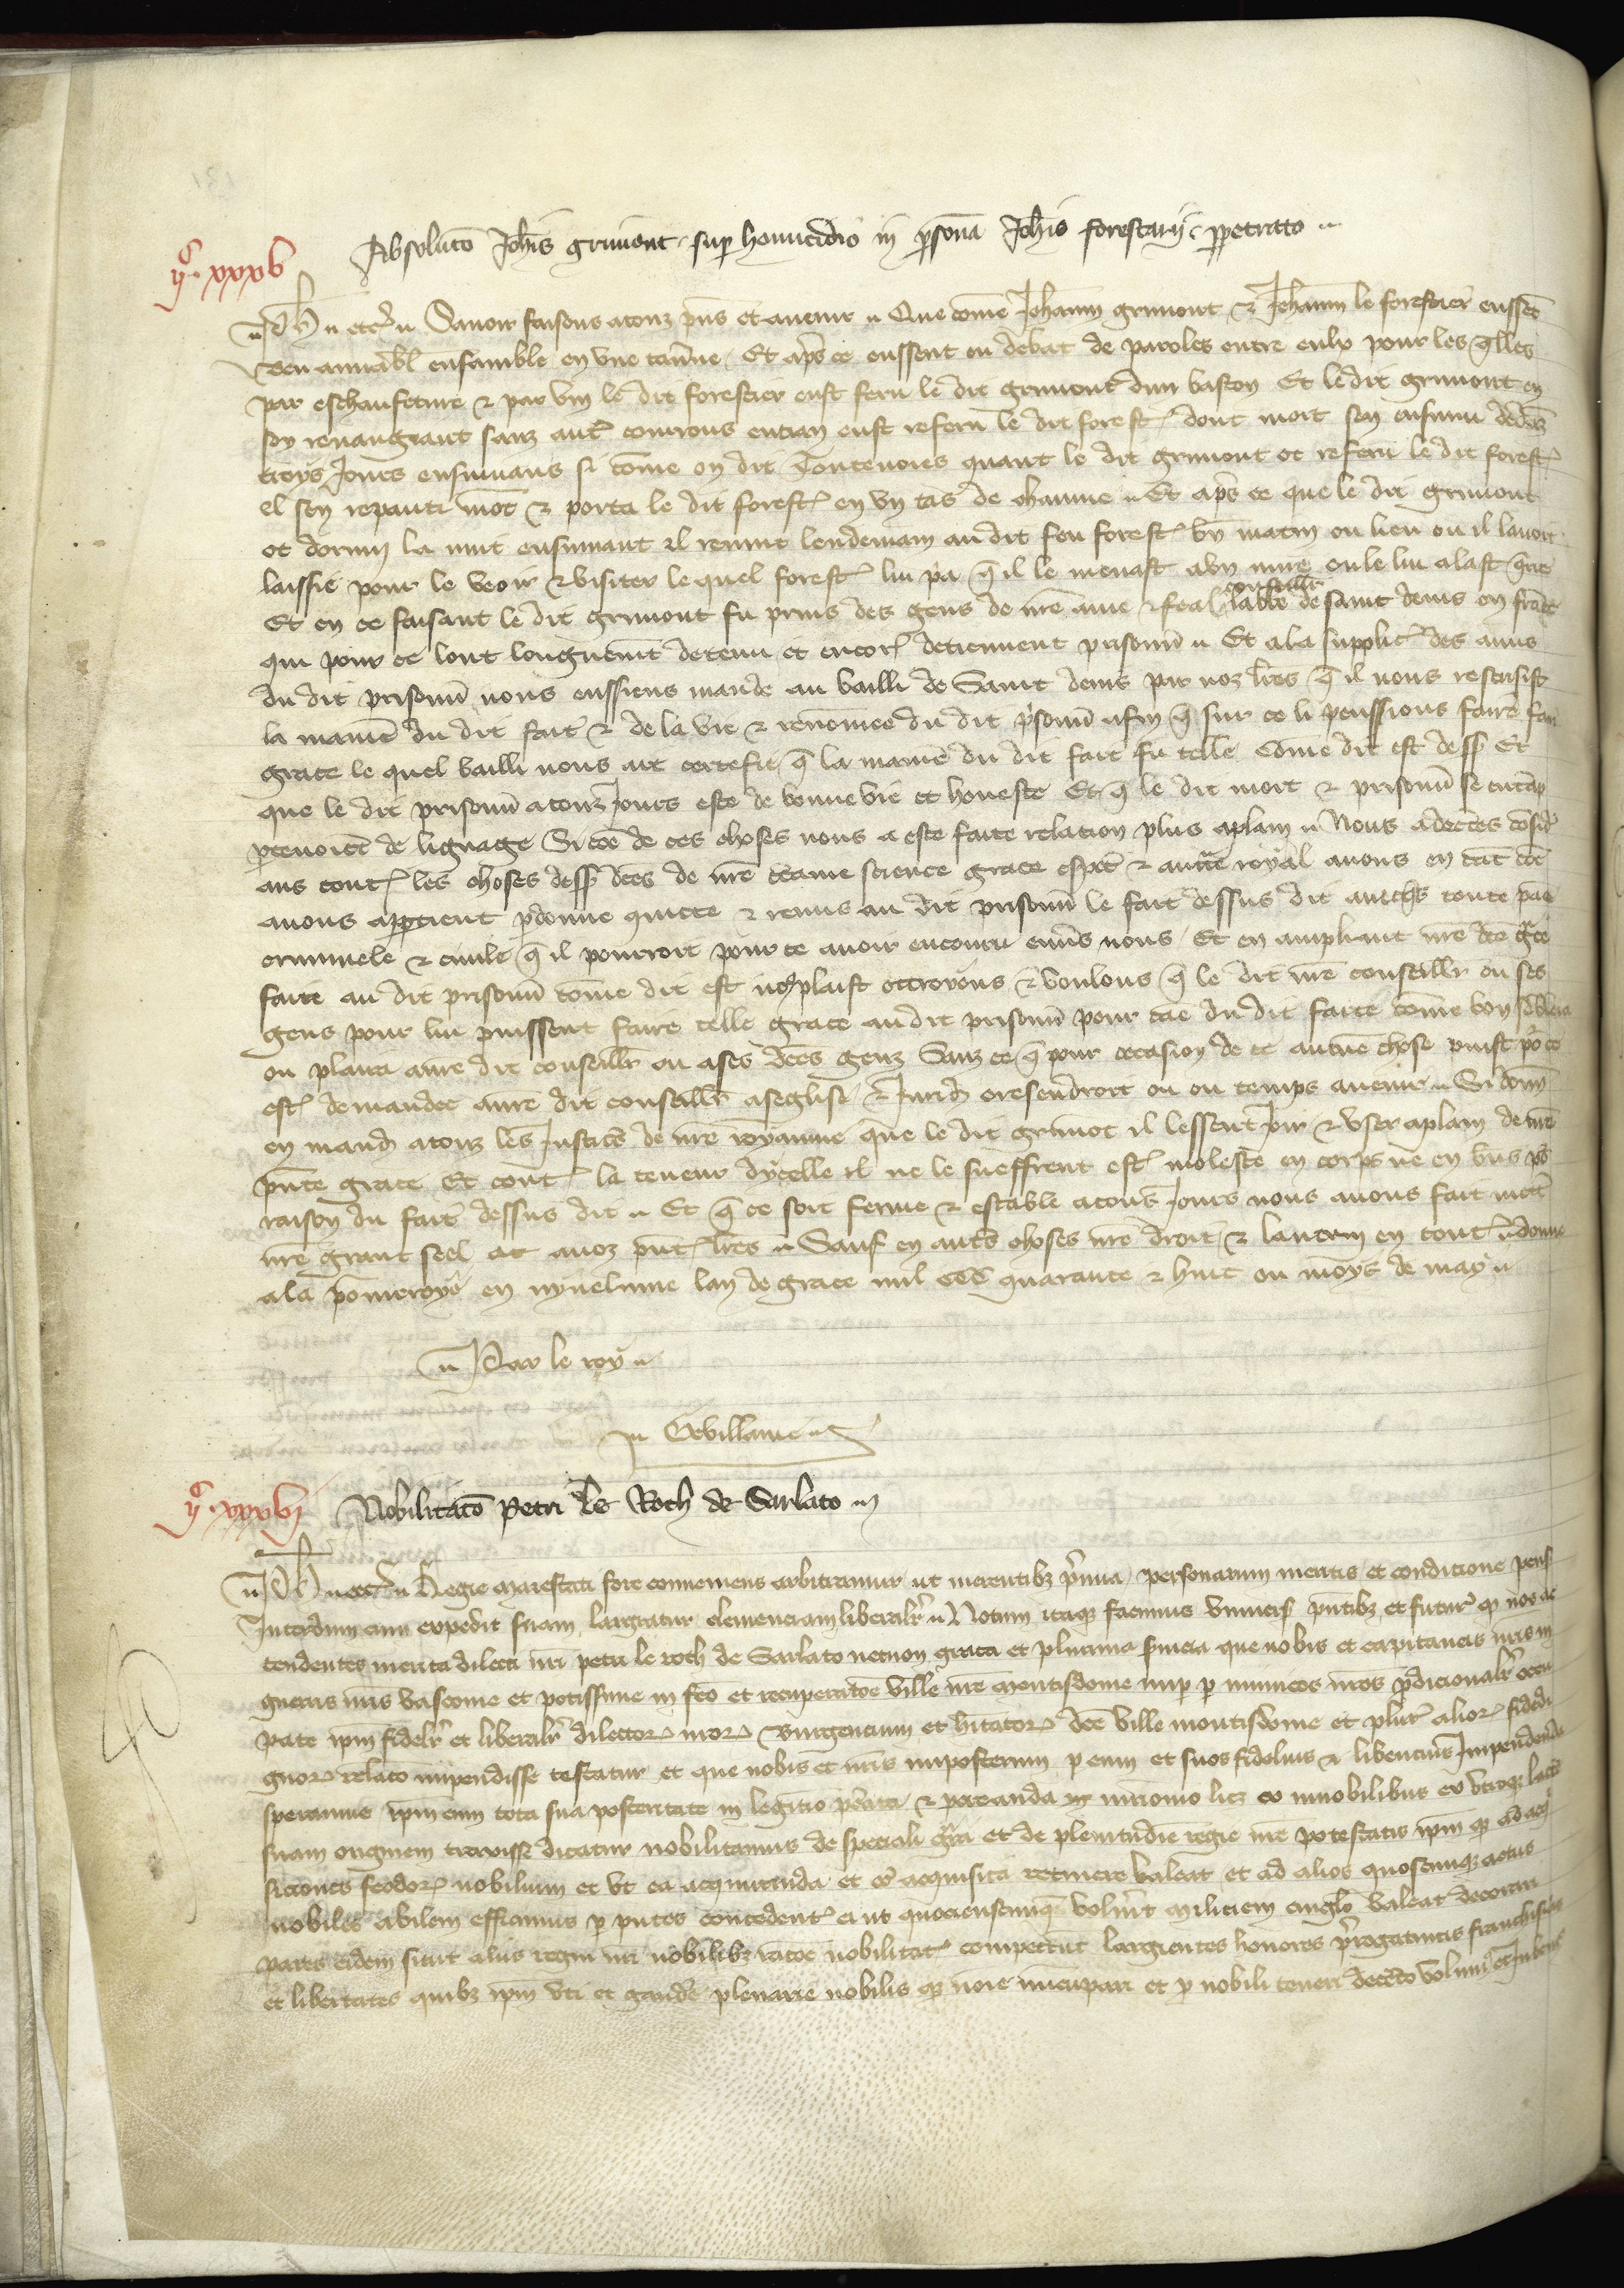 Absoluto Johis grimont sup homicidio in psona Johis forestarij ppetrato
ijc xxxv
Ph etc Savoir faisons a touz pns et avenir Que come Jehannin grimont & Jehannin le forestier eussent
beu amiabl ensamble en une taverne Et aps ce eussent eu debat de paroles entre eulx pour les qlles
par eschaufeture & par vin le dit forestier eust feru le dit grimont dun baston Et le dit grimont en
soy revanchant sanz autre courrous eust referu le dit forest dont mort sen ensuivi dedenz
troys Jours ensuivans si come on dit Toutevoies quant le dit grimont ot referu le dit forest
el sen repanti mot & porta le dit forest en un tas de chaume Et aps ce que le dit grimont
ot dormi la nuit ensuivant il revint lendemain au dit feu forest bn matin ou lieu ou il lavoit
laissie pour le veoir & visiter le quel forest lui pa q il le menast a un mire ou le lui alast qrre
Et en ce faisant le dit grimont fu prins des gens de nre ame & feal conseillr labbe de saint denis en france
qui pour ce lont longuemt detenu et encor detiennent prisonn Et a la supplic des amis
du dit prisonn nous eussiens mande au bailli de Saint denis par noz lres q il nous rescrisist
la maniē du dit fait & de la vie & renomee du dit psonn afin q sur ce li peussions faire
grace le quel bailli nous ait certefie q la maniē du dit fait fu telle Come dit est dess Et
que le dit prisonn a touz Jours este de bonne vie et honeste Et q le dit mort & prisonn se entap
ptenoiet de lignage Si coe de ces choses nous a este faite relation plus a plain Nous adectes
ans tout les choses dess dces de nre ctaine science grace espcl & aucte royal avons en tat coe
a nous appartient pdonne quitte & remis au dit prisonn le fait dessus dit avecqs toute pae
criminele & civile q il pourroit pour ce avoir encouru envs nous Et en ampliant nre dce gce
faite au dit prisonn come dit est nous plaist ottroyons & voulons q le dit nre conseillr ou ses
gens pour lui puissent faire telle grace au dit prisonn pour cae du dit faite come bon
ou plaira a nre dit conseillr ou a ses dces genz Sanz ce q pour occasion de ce aucune chose puist
est demandee a nre dit conseillr a seglise & Jurid oresendroit ou ou temps avenir Si donn
en mand a touz les Justices de nre royaume que le dit grimot il lessent Joir & user a plain de nre
pnte grace Et cont la teneur dycelle il ne le sueffrent est moleste en corps ne en biens
raison du fait dessus dit Et q ce soit ferme & estable a tous Jours nous avons fait mett
nre grant seel a noz pnt lres Sauf en auts choses nre droit & lautrui en tout donne
a la pomeroye en yvelinne lan de grace mil CCC quarante & huit ou moys de may
Par le roy
Ervillanie
ijc xxxvj
Nobilitato Petri le Roch de Sarlato
Ph etc Regie maiestati fore conveniens arbitramur ut merentibz pmia personarum meritis et condicione pens
Interdum cum expedit suam largiatur clemenciam liberalr Notum itaqz facimus univs pntibz et futur qd nos
tendentes merita dilecti nri petri le roch de Sarlato necnon grata et plurima svicia que nobis et capitaneis nris in
guerris nris vasconie et potissime in fco et recuperatoe ville nre montisdome nup p inimicos nros pdicionalr occu
pate ipm fidelr et liberalr dilector nror Burgencium et hitator dce ville montisdome et plur alior fidedi
gnor relato impendisse testatur et que nobis et nris imposterum p eum et suos fidelius & libencius Impendenda
speramus ipm cum tota sua posteritate in legitio pcata & procreanda in mrionio licz ex innobilibus ex utroqz late
suam originem traxisse dicatur nobilitamus de speciali gra et de plenitudine regie nre potestatis ipm qz ad acq
siciones feodor nobilium et ut ea acquirenda et acquisita retinere valeat et ad alios quoscumqz actus
nobiles abilem efficimus p pntes concedent ei ut quociensciqz voluit miliciem cingulo valeat decorari
pates eidem sicut aliis regni nri nobilibz ratoe nobilitat competunt largientes honores progativis franchisiis
et libertates quibz ipm uti et gaude plenarie nobilis qz noie nuncupari et p nobili teneri decto volum et Jubem